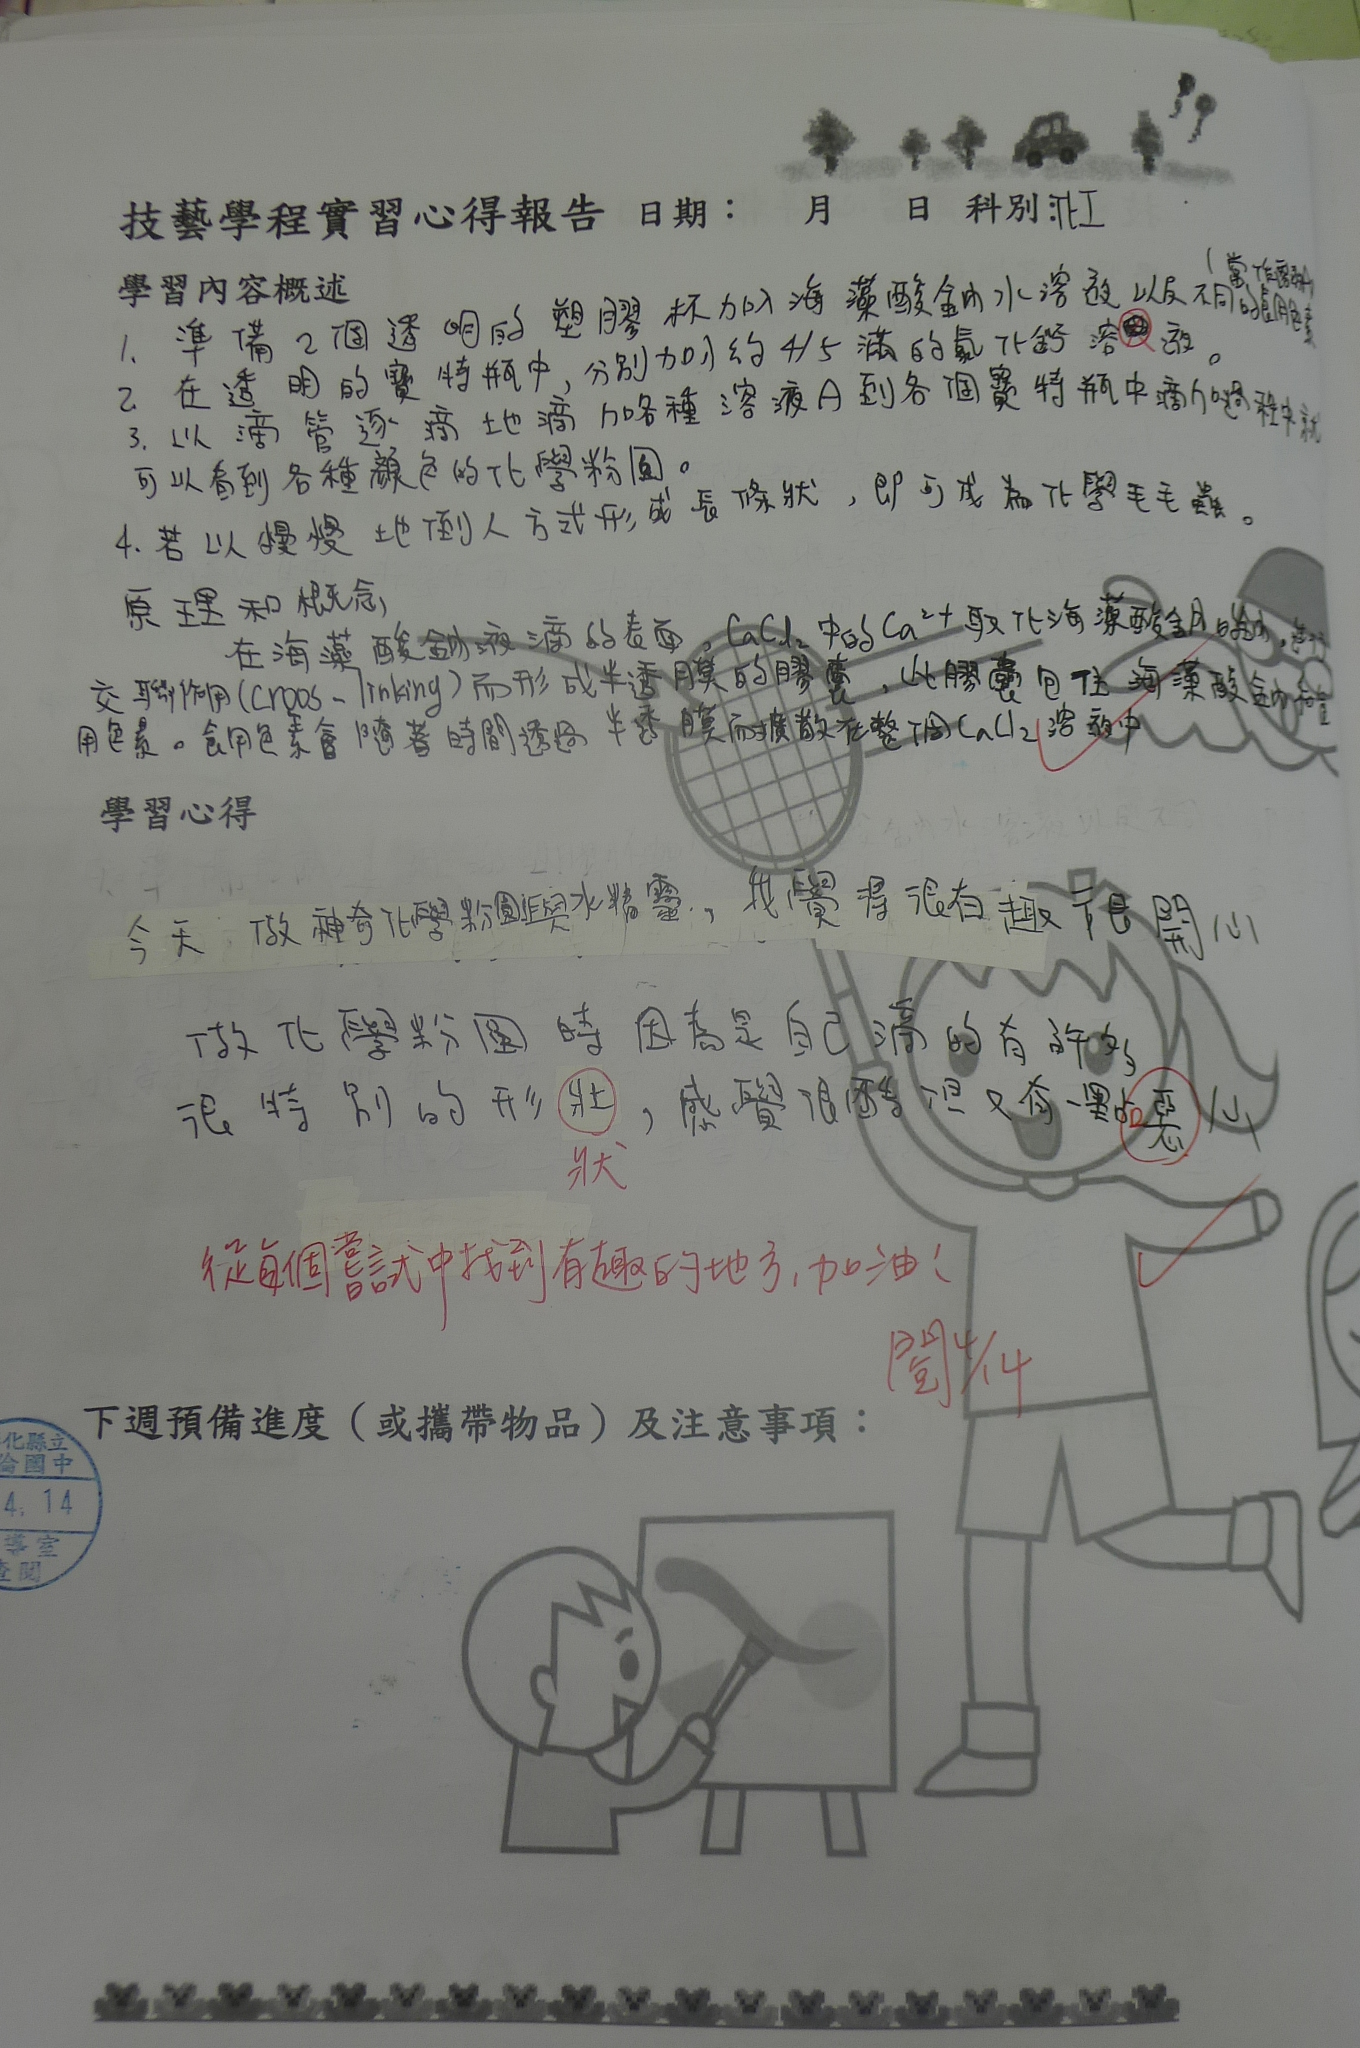 技藝學程實習心得報告 日期： 月 日 科別:化工
學習內容概述
1. 準備2個透明的塑膠杯加入海藻酸鈉水溶液以及不同的食用色素
2. 在透明的寶特瓶中，分別加入約4/5滿的氯化鈣溶液。
3. 以滴管逐滴地滴加各種溶液A到各個寶特瓶中滴加過程中就
可以看到各種顏色的化學粉圓。
4. 若以慢慢地倒入方式形成長條狀，即可成為化學毛毛蟲。
原理和概念
在海藻酸鈉液滴的表面，CaCl2中的Ca2+取代海藻酸鈉的鈉，進行
交聯作用(Croos-linking)而形成半透膜的膠囊，此膠囊包住海藻酸鈉和食
用色素。食用色素會隨著時間透過半透膜而擴散在整個CaCl2溶液中
學習心得
今天做神奇化學粉圓與水精靈，我覺得很有趣很開心
做化學粉圓時因為是自己滴的有許多
很特別的形壯，感覺很酷但又有一點噁心
狀
從每個嘗試中找到有趣的地方，加油！
閱4/14
下週預備進度（或攜帶物品）及注意事項：
化縣立
國中
4.14
導室
查閱